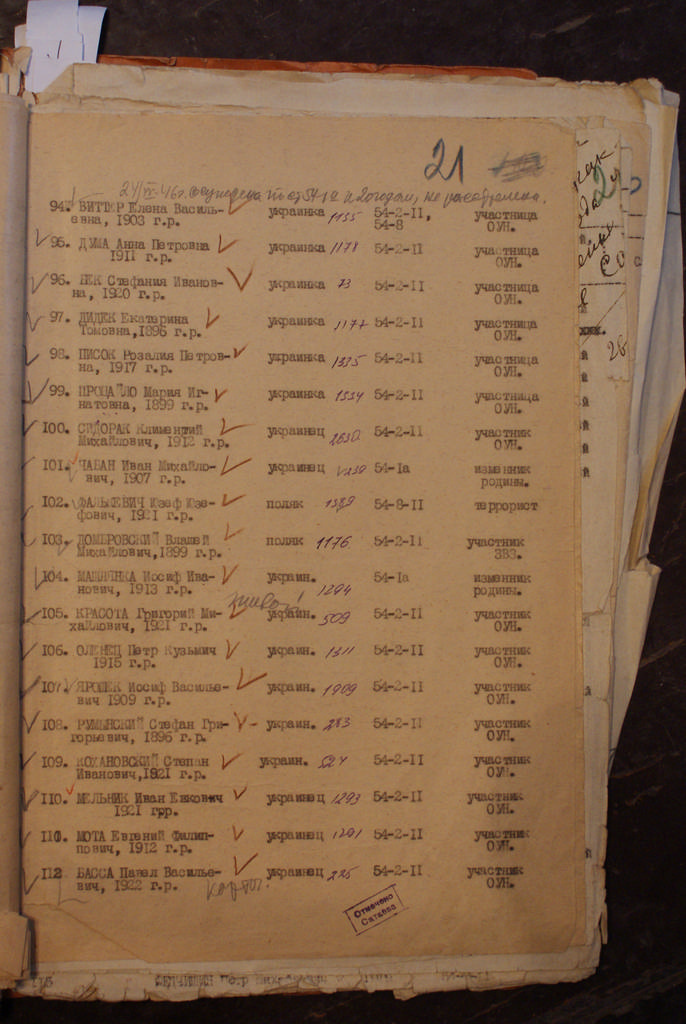 21
24/VI-46г. осуждена по ст 54-1а к 20 годам, не рассмотрена.
94. ВИТТЕР Елена Василь- украинка 1135 54-2-II, участница
евна, 1903 г.р. 54-8 ОУН.
95. ДУМА Анна Петровна украинка 1178 54-2-II участница
1911 г.р. ОУН.
96. ПЕК Стефания Иванов- украинка 73 54-2-II участница
на, 1920 г.р. ОУН.
97. ДИДЕК Екатерина украинка 1177 54-2-II участница
Томовна, 1896 г.р. ОУН.
98. ПИСОК Розалия Петров- украинка 1335 54-2-II участница
на, 1917 г.р. ОУН.
99. ПРОЦАЙЛО Мария Иг- украинка 1334 54-2-II участница
натовна, 1899 г.р. ОУН.
100. СИДОРАК Климентий украинец 2630 54-2-II участник
Михайлович, 1912 г.р. ОУН.
101. ЧАБАН Иван Михайло- украинец 54-Iа изменник
вич, 1907 г.р. родины.
102. ФАЛЬКЕВИЧ Юзеф Юзе- поляк 1389 54-8-II террорист
фович, 1921 г.р.
103. ДОМБРОВСКИЙ Владей поляк 1176 54-2-II участник
Михайлович, 1899 г.р. ЗВЗ.
104. МАШЛЯНКА Иосиф Ива- украин. 1294 54-Iа изменник
нович, 1913 г.р. родины.
живой!
105. КРАСОТА Григорий Ми- украин. 509 54-2-II участник
хайлович, 1921 г.р. ОУН.
106. ОЛЕНЕЦ Петр Кузьмич украин. 1311 54-2-II участник
1915 г.р. ОУН.
107. ЯРОШЕК Иосиф Василье- украин. 1909 54-2-II участник
вич 1909 г.р. ОУН.
108. РУМЫНСКИЙ Стефан Гри- украин. 283 54-2-II участник
горьевич, 1896 г.р. ОУН.
109. КОХАНОВСКИЙ Степан украин. 524 54-2-II участник
Иванович, 1921 г.р. ОУН.
110. МЕЛЬНИК Иван Евкович украинец 1293 54-2-II участник
1921 г.р. ОУН.
111. МОТА Евгений Филип- украинец 1291 54-2-II участник
пович, 1912 г.р. ОУН.
112 БАССА Павел Василье- украинец 225 54-2-II участник
вич, 1922 г.р. ОУН.
Отмечено